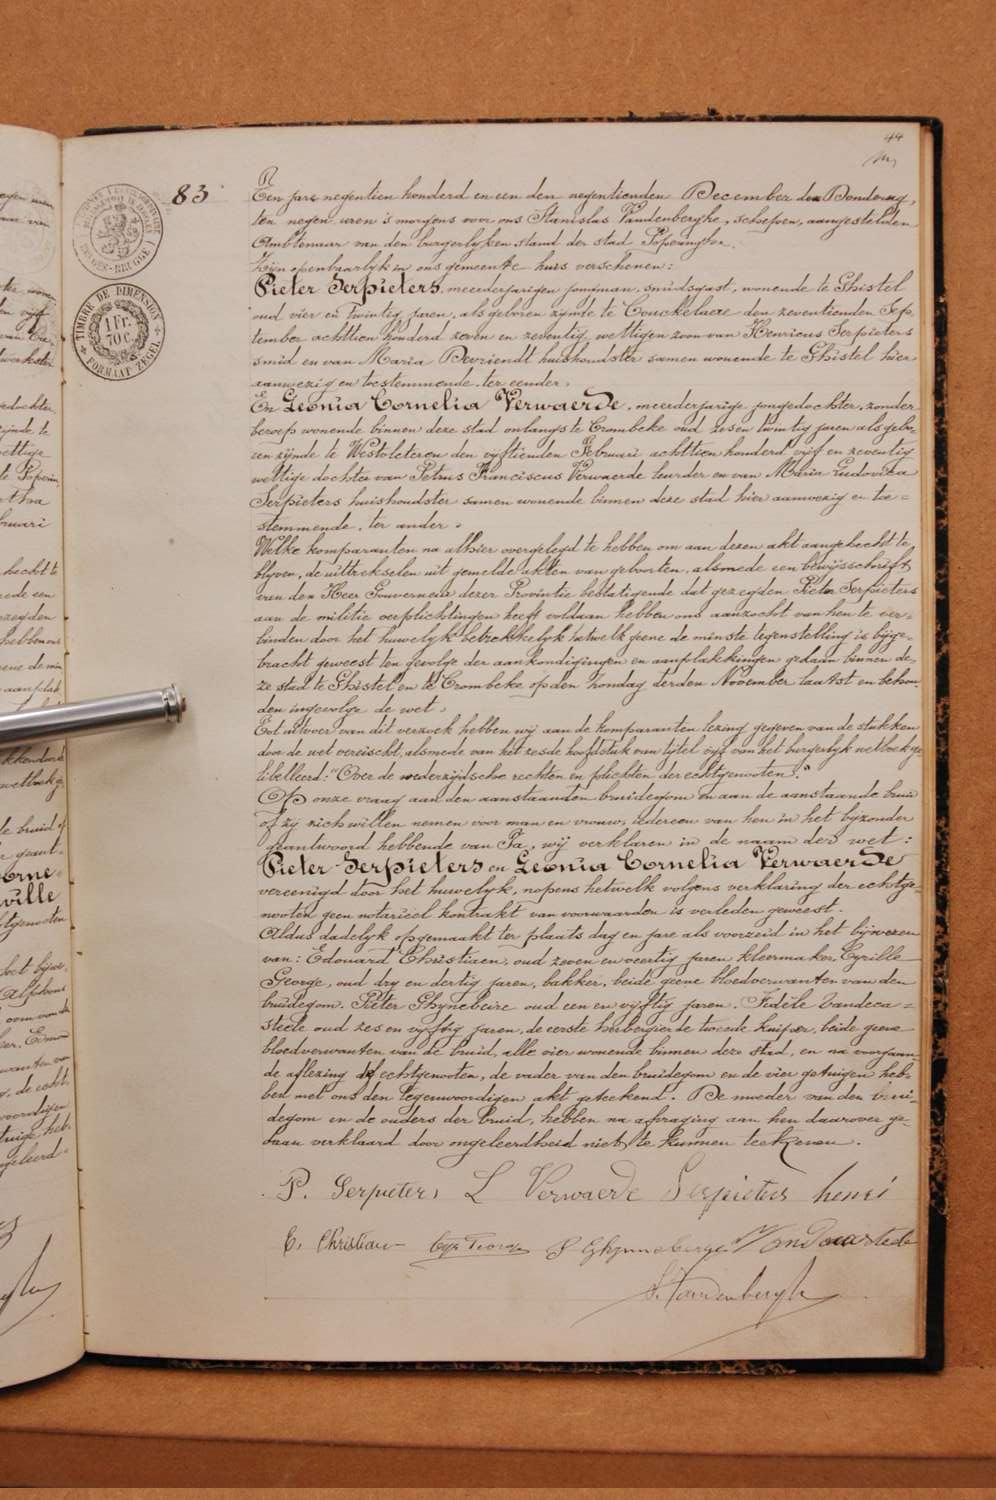 44
83
Een jare negentien honderd en een den negentienden December den Donderdag,
ten negen uren 's morgens voor ons Stanislas Vandenberghe, schepen, aangestelden
Ambtenaar van den burgerlyken stand der stad Poperinghe.
Zyn openbaarlyk in ons gemeente huis verschenen:
Pieter Serpieters, meerderjarigen jongman, smidsgast, wonende te Ghistel
oud vier en twintig jaren, als geboren zynde te Couckelaere den zeventienden Sep-
tember achttien honderd zeven en zeventig, wettigen zoon van Henricus Serpieters
smid en van Maria Devriendt huishoudster samen wonende te Ghistel hier
aanwezig en toestemmende, ter eender,
En Leonia Cornelia Verwaerde, meerderjarige jongedochter, zonder
beroep wonende binnen deze stad onlangs te Crombeke oud zes en twintig jaren als gebo-
ren zynde te Westvleteren den vyftienden Februari achttien honderd vyf en zeventig
wettige dochter van Petrus Franciscus Verwaerde leurder en van Maria Ludovica
Serpieters huishoudster samen wonende binnen deze stad hier aanwezig en toe=
stemmende, ter ander.
Welke komparanten na alhier overgelegd te hebben om aan dezen akt aangehecht te
blyven, de uittrekselen uit gemelde akten van geboorten, alsmede een bewysschrift
van den Heer Gouverneur dezer Provintie bestatigende dat gezegden Pieter Serpieters
aan de militie verplichtingen heeft voldaan hebben ons aanzocht van hen te ver-
binden door het huwelyk betrekkelyk hetwelk geene de minste tegenstelling is byge-
bracht geweest ten gevolge der aankondigingen en aanplakkingen gedaan binnen de-
ze stad te Ghistel en te Crombeke op den Zondag derden November laatst en behou-
den ingevolge de wet.
Tot uitvoer van dit verzoek hebben wy aan de komparanten lezing gegeven van de stukken
door de wet vereischt, alsmede van het zesde hoofdstuk van tytel vyf van het burgerlyk wetboek ge-
libelleerd: "Over de wederzydsche rechten en plichten der echtgenooten."
Op onze vraag aan den aanstaanden bruidegom en aan de aanstaande bruid
of zy zich willen nemen voor man en vrouw, iedereen van hen in het byzonder
geantwoord hebbende van Ja, wy verklaren in de naam der wet:
Pieter Serpieters en Leonia Cornelia Verwaerde
vereenigd door het huwelyk, nopens hetwelk volgens verklaring der echtge-
nooten geen notarieel kontrakt van voorwaarden is verleden geweest.
Aldus dadelyk opgemaakt ter plaats dag en jare als voorzeid in het bywezen
van: Edouard Christiaen, oud zeven en veertig jaren kleermaker, Cyrille
George, oud dry en dertig jaren, bakker, beide geene bloedverwanten van den
bruidegom. Pieter Ghyneleire oud een en vyftig jaren. Fidèle Vandeca=
steele oud zes en vyftig jaren, de eerste herbergier de tweede kuiper, beide geene
bloedverwanten van de bruid, alle vier wonende binnen deze stad, en na voorgaan-
de aflezing de echtgenooten, de vader van den bruidegom en de vier getuigen heb-
ben met ons den tegenwoordigen akt geteekend. De moeder van den brui-
degom en de ouders der bruid, hebben na afvraging aan hen daarover ge-
daan verklaard door ongeleerdheid niet te kunnen teekenen.
P. Serpieters L Verwaerde Serpieters henri
E. Christiaen
S. Vandenberghe
TIMBRE DE DIMENSION
1 Fr. 70 C.
FORMAAT ZEGEL